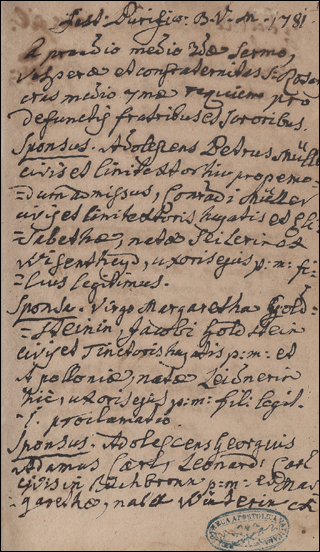 Fest: Purific: B. V. M. 1781.
A prandio medio 2dæ Sermo,
Vesperæ et confraternitas S. Rosar
cras medio 7mæ requiem pro
defunctis fratribus et Sororibus.
Sponsus. Adolescens Petrus Müller
civis et linitextor huc propemo=
=dum admissus, Conradi Müller
civis et linitextoris hujatis et Eli=
=sabethæ, natæ Seilerin ex
uxoris ejus p: m: fi=
=lius legitimus.
Sponsa. Virgo Margaretha Gold=
=steinin, Jacobi Goldstein
civis et Tinctoris hujatis p: m: et
Apolloniæ, natæ Leisnerin
hic, uxoris ejus p: m: fili: legit:
1. proclamatio.
Sponsus. Adolescens Georgius
Adamus Carl, Leonardi Carl
civis in p: m: et Mar=
garethæ, natæ Wüsterin ex